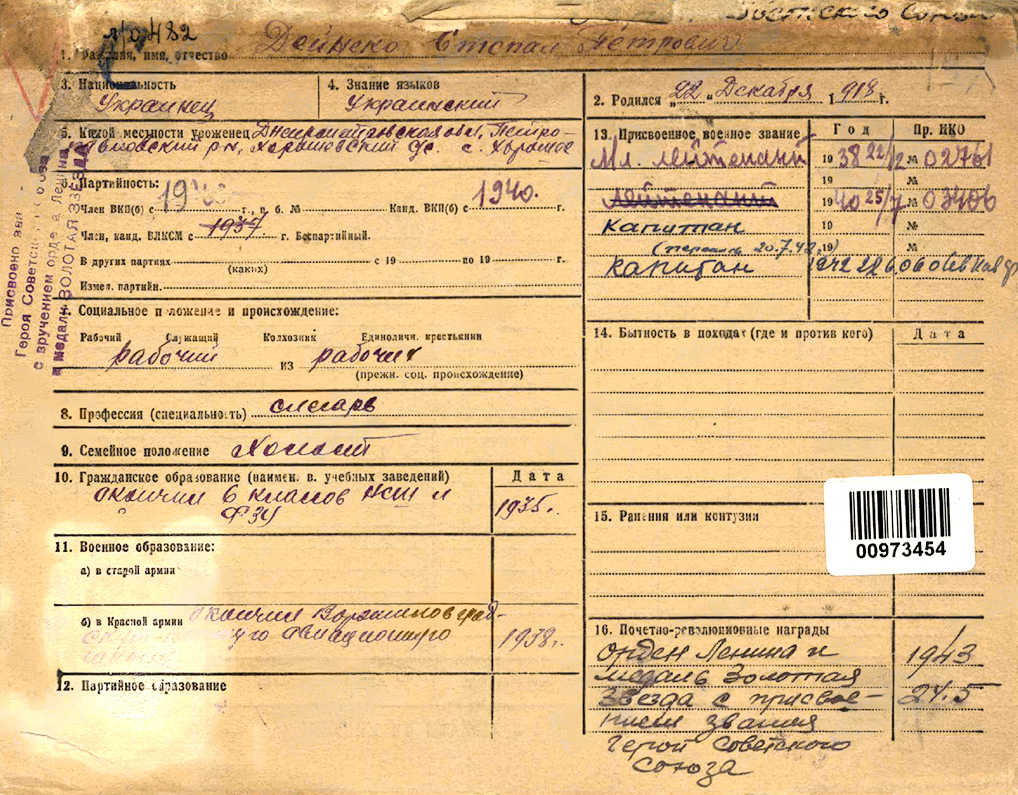 Советского Союза
№0482
1. Фамилия, имя, отчество Дейнеко Степан Петрович
3. Национальность
Украинец
4. Знание языков
Украинский
2. Родился „22" Декабря 1918 г.
5. Какой местности уроженец Днепропетровская обл, Петро-
павловский р-н, с.
6. Партийность:
Член ВКП(б) с г., п. б. № Канд. ВКП(б) с 1940. г.
Член, канд. ВЛКСМ с 1937 г. Беспартийный.
В других партиях с 19 по 19 г.
(каких)
Измен. партийн.
7. Социальное положение и происхождение:
Рабочий Служащий Колхозник Единоличн. крестьянин
рабочий из рабочих
(прежн. соц. происхождение)
8. Профессия (специальность) слесарь
9. Семейное положение Холост
10. Гражданское образование (наимен. в. учебных заведений)
Дата
окончил 6 классов НСШ и
ФЗУ
1935г.
11. Военное образование:
а) в старой армии
б) в Красной армии окончил Ворошиловград-
авиационную
1938г.
12. Партийное образование
13. Присвоенное военное звание Год Пр. НКО
Мл. лейтенант 1938 22/12 № 02761
19 №
лейтенант 1940 25/7 № 03406
Капитан 19 №
20.7.42 19 №
Капитан 1942 22.6
14. Бытность в походах (где и против кого) Дата
15. Ранения или контузии
00973454
16. Почетно-революционные награды
Орден Ленина и
медаль Золотая
Звезда с присвое-
нием звания
Герой Советского
Союза
1943
24.5
Присвоено зва
Героя Советского Союза
с вручением орд-а Ленина
и медали ЗОЛОТАЯ ЗВЕЗДА